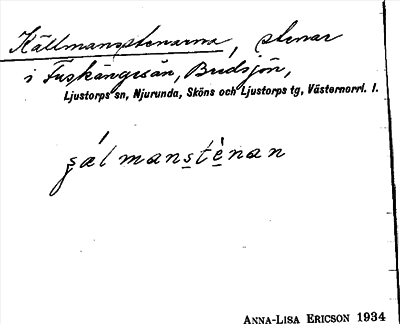 Källmanstenarna, stenar
i Fuskängesån, Bredsjön,
Ljustorps sn, Njurunda, Sköns och Ljustorps tg, Västernorrl. l.
ʂálmanstènan
ANNA-LISA ERICSON 1934